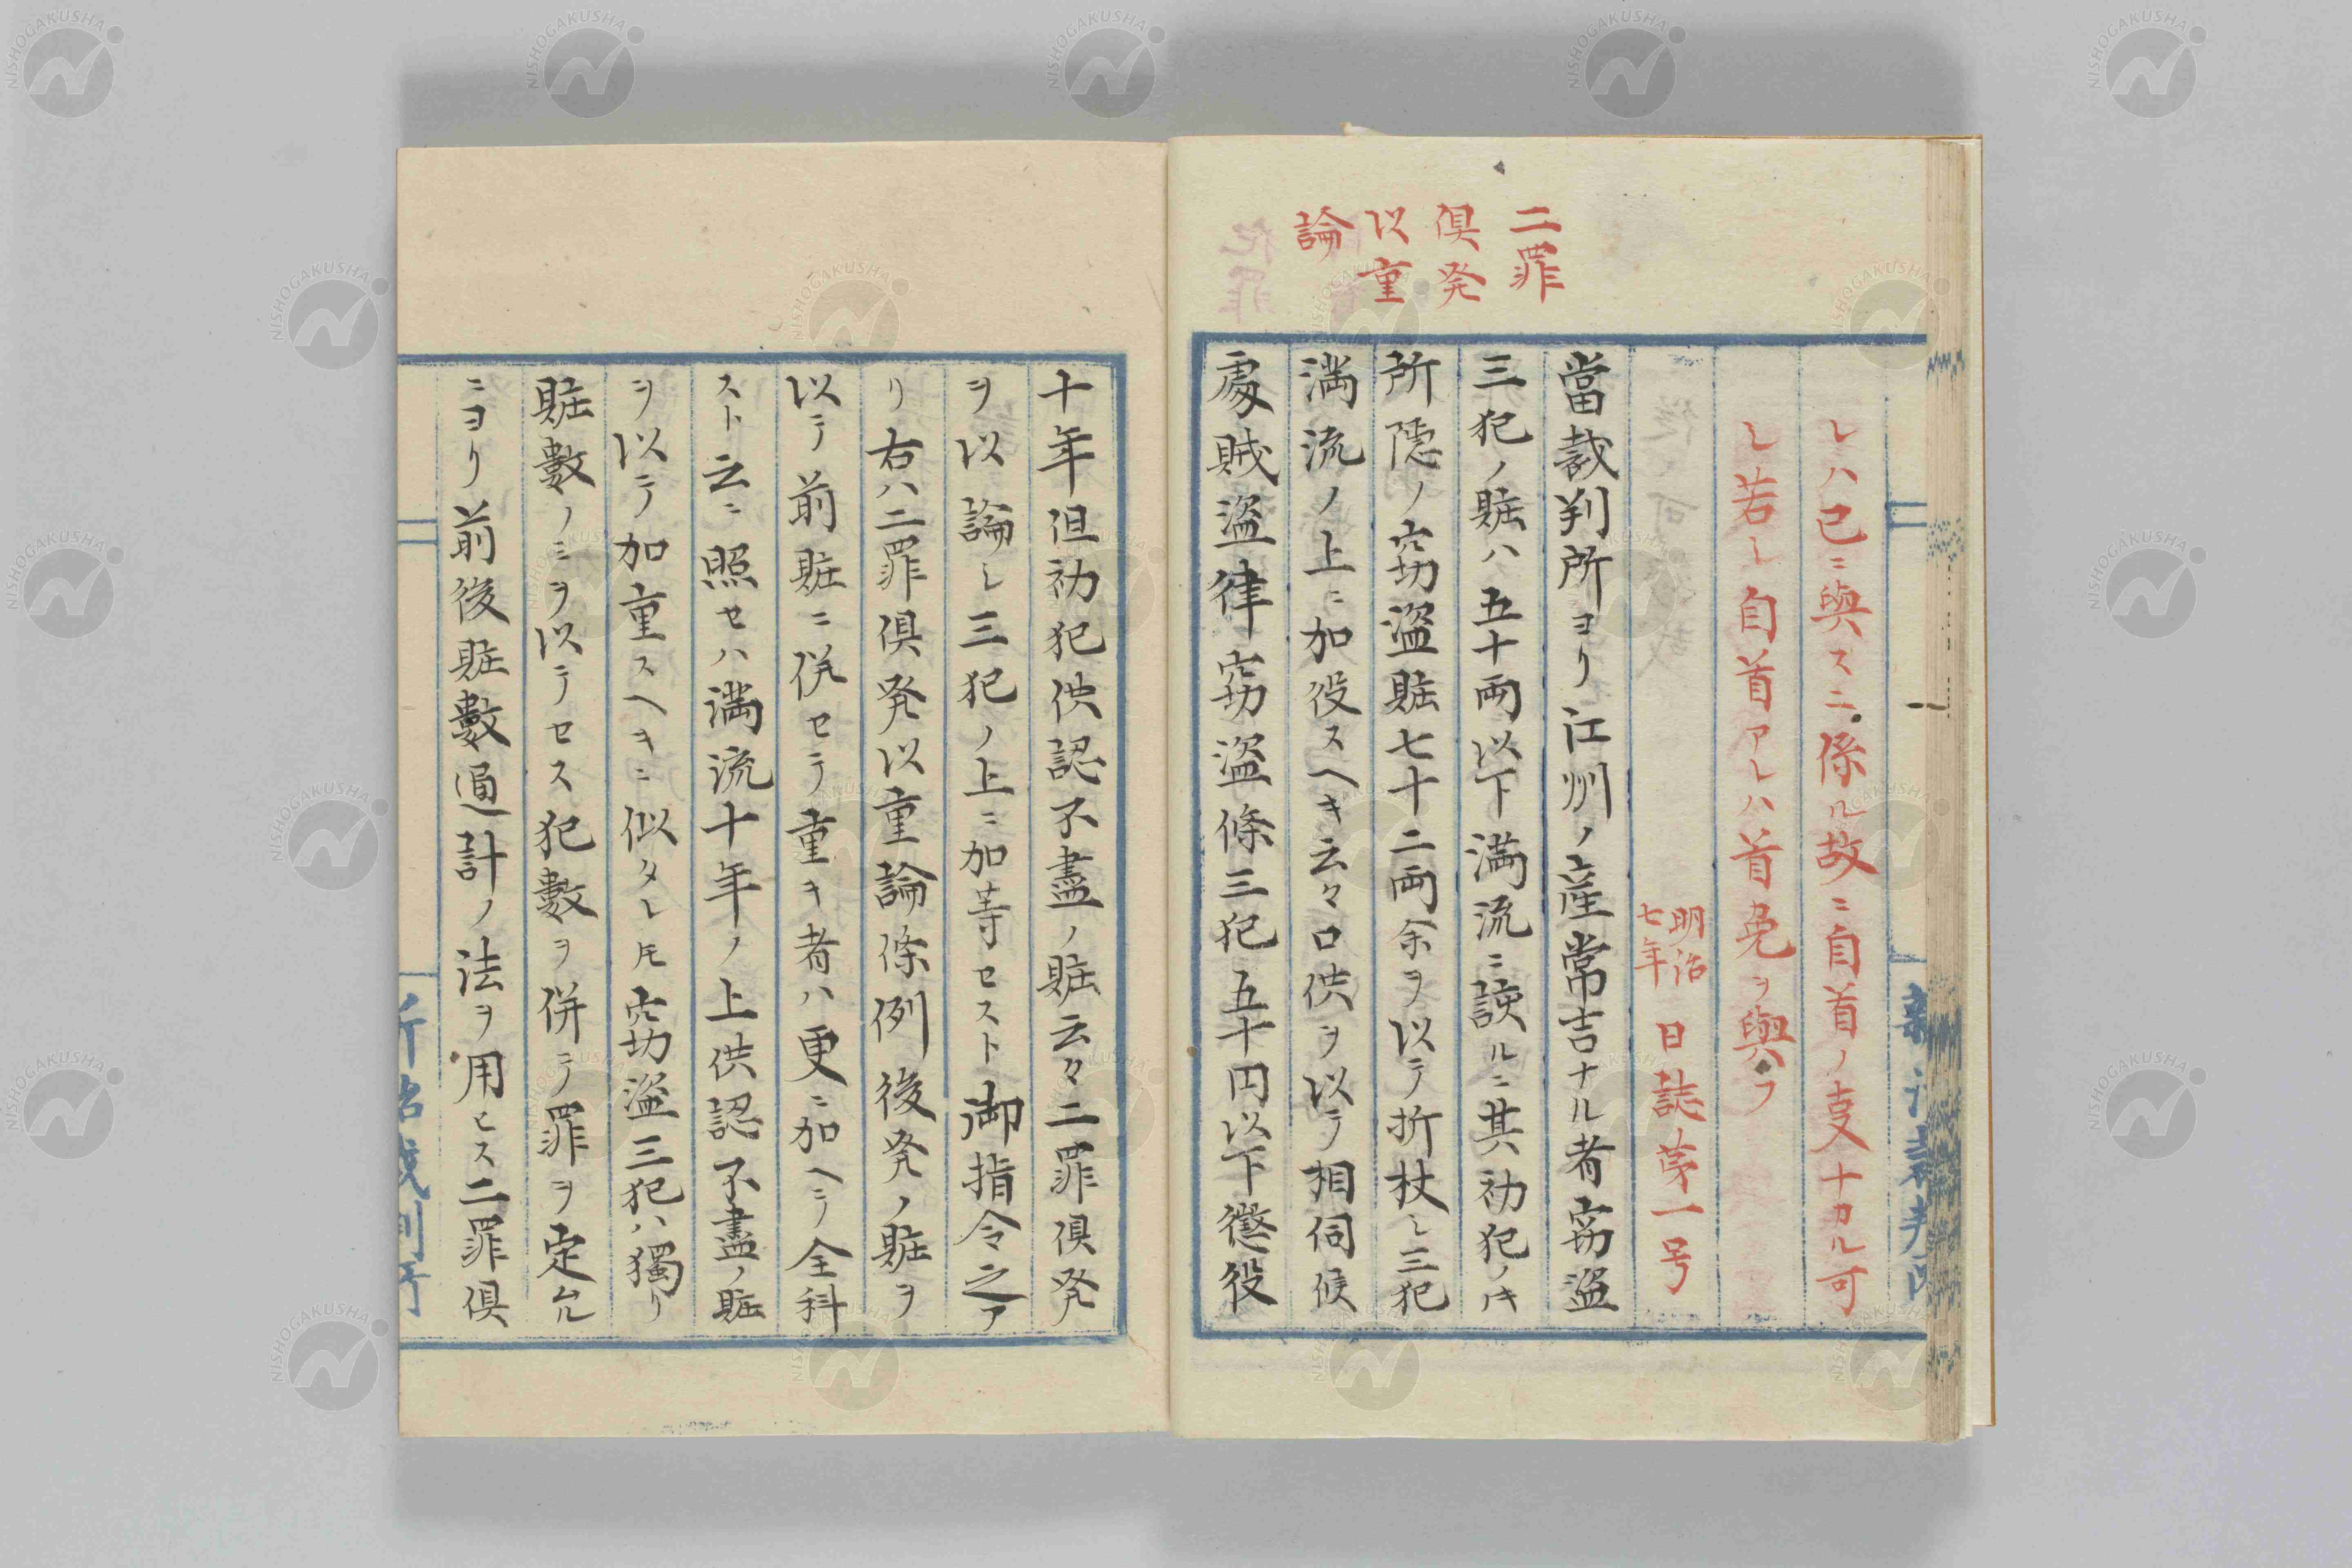 二罪
倶発
以重
論
レハ已ニ與スニ係ル故ニ自首ノ支ナカル可
シ若シ自首アレハ首免ヲ與フ
明治七年 日誌第一号
當裁判所ヨリ江州ノ産常吉ナル者窃盗
三犯ノ賍ハ五十両以下満流ニ諛ルニ其初犯ノ時
所隠ノ窃盗賍七十二両余ヲ以テ折杖シ三犯
満流ノ上ニ加役スヘキ云々口供ヲ以テ相伺候
處賊盗律窃盗條三犯五十円以下懲役
十年但初犯供認不盡ノ賍云々二罪倶発
ヲ以論シ三犯ノ上ニ加等セスト御指令之ア
リ右ハ二罪倶発以重論條例後発ノ賍ヲ
以テ前賍ニ併セテ重キ者ハ更ニ加ヘテ全科
スト云ニ照セハ満流十年ノ上供認不盡ノ賍
ヲ以テ加重スヘキニ似タレ𪜈窃盗三犯ハ獨リ
賍數ノミヲ以テセス犯數ヲ併テ罪ヲ定ムル
ニヨリ前後賍數通計ノ法ヲ用ヒス二罪倶
新治裁判所
NISHOGAKUSHA